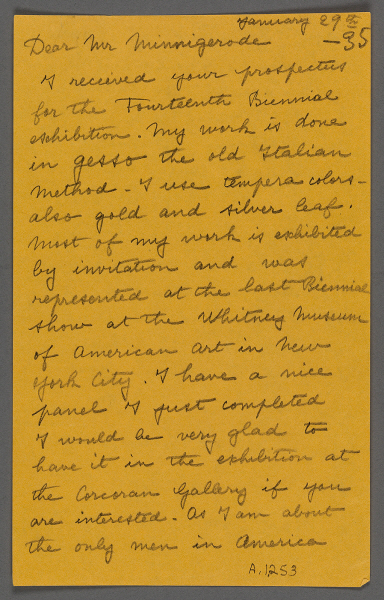 January 29th
-35
Dear Mr Minnigerode
I received your prospectus
for the Fourteenth Biennial
exhibition. My work is done
in gesso the old Italian
method - I use tempera colors -
also gold and silver leaf.
Most of my work is exhibited
by invitation and was
represented at the last Biennial
show at the Whitney Museum
of American Art in New
York City. I have a nice
panel I just completed
I would be very glad to
have it in the exhibition at
the Corcoran Gallery if you
are interested. As I am about
the only men in America
A.1253